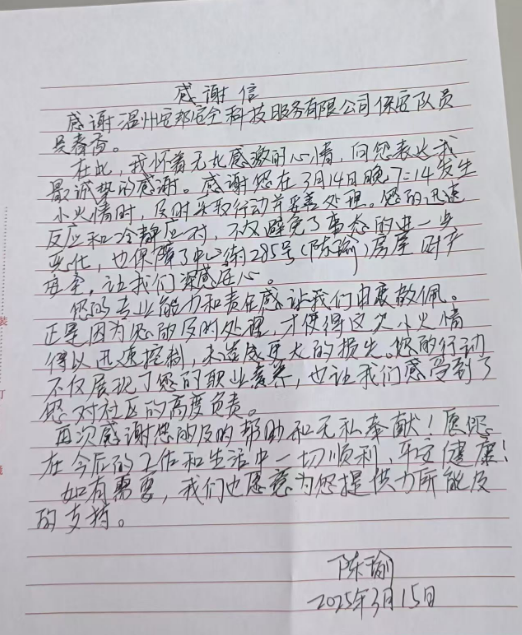 感谢信
感谢温州安邦安全科技服务有限公司保安队员
吴春雷。
在此，我怀着无比感激的心情，向您表达我
最诚挚的感谢。感谢您在3月14日晚7:14发生
小火情时，及时采取行动并妥善处理。您的迅速
反应和冷静应对，不仅避免了事态的进一步
恶化，也保障了中心街285号(陈瑜)房屋财产
安全，让我们深感安心。
您的专业能力和责任感让我们由衷敬佩。
正是因为您的及时处理，才使得这次小火情
得以迅速控制，未造成更大的损失。您的行动
不仅展现了您的职业素养，也让我们感受到了
您对社区的高度负责。
再次感谢您的及时帮助和无私奉献！愿您
在今后的工作和生活中一切顺利、平安健康！
如有需要，我们也愿意为您提供力所能及
的支持。
陈瑜
2025年3月15日
装
订